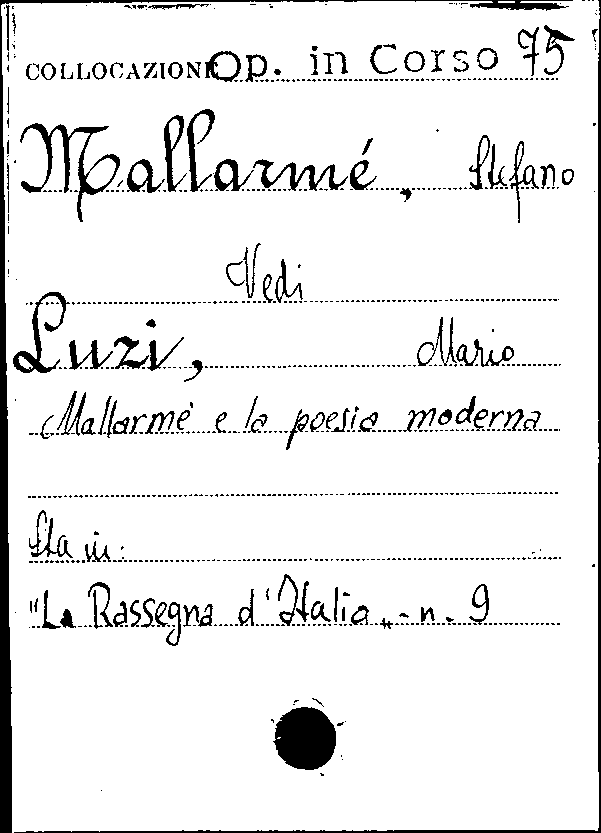 COLLOCAZIONE Op. in Corso 75
Mallarmé, Stefano
Vedi
Luzi, Mario
Mallarmé e la poesia moderna
Sta in:
"La Rassegna d'Italia„ - n. 9